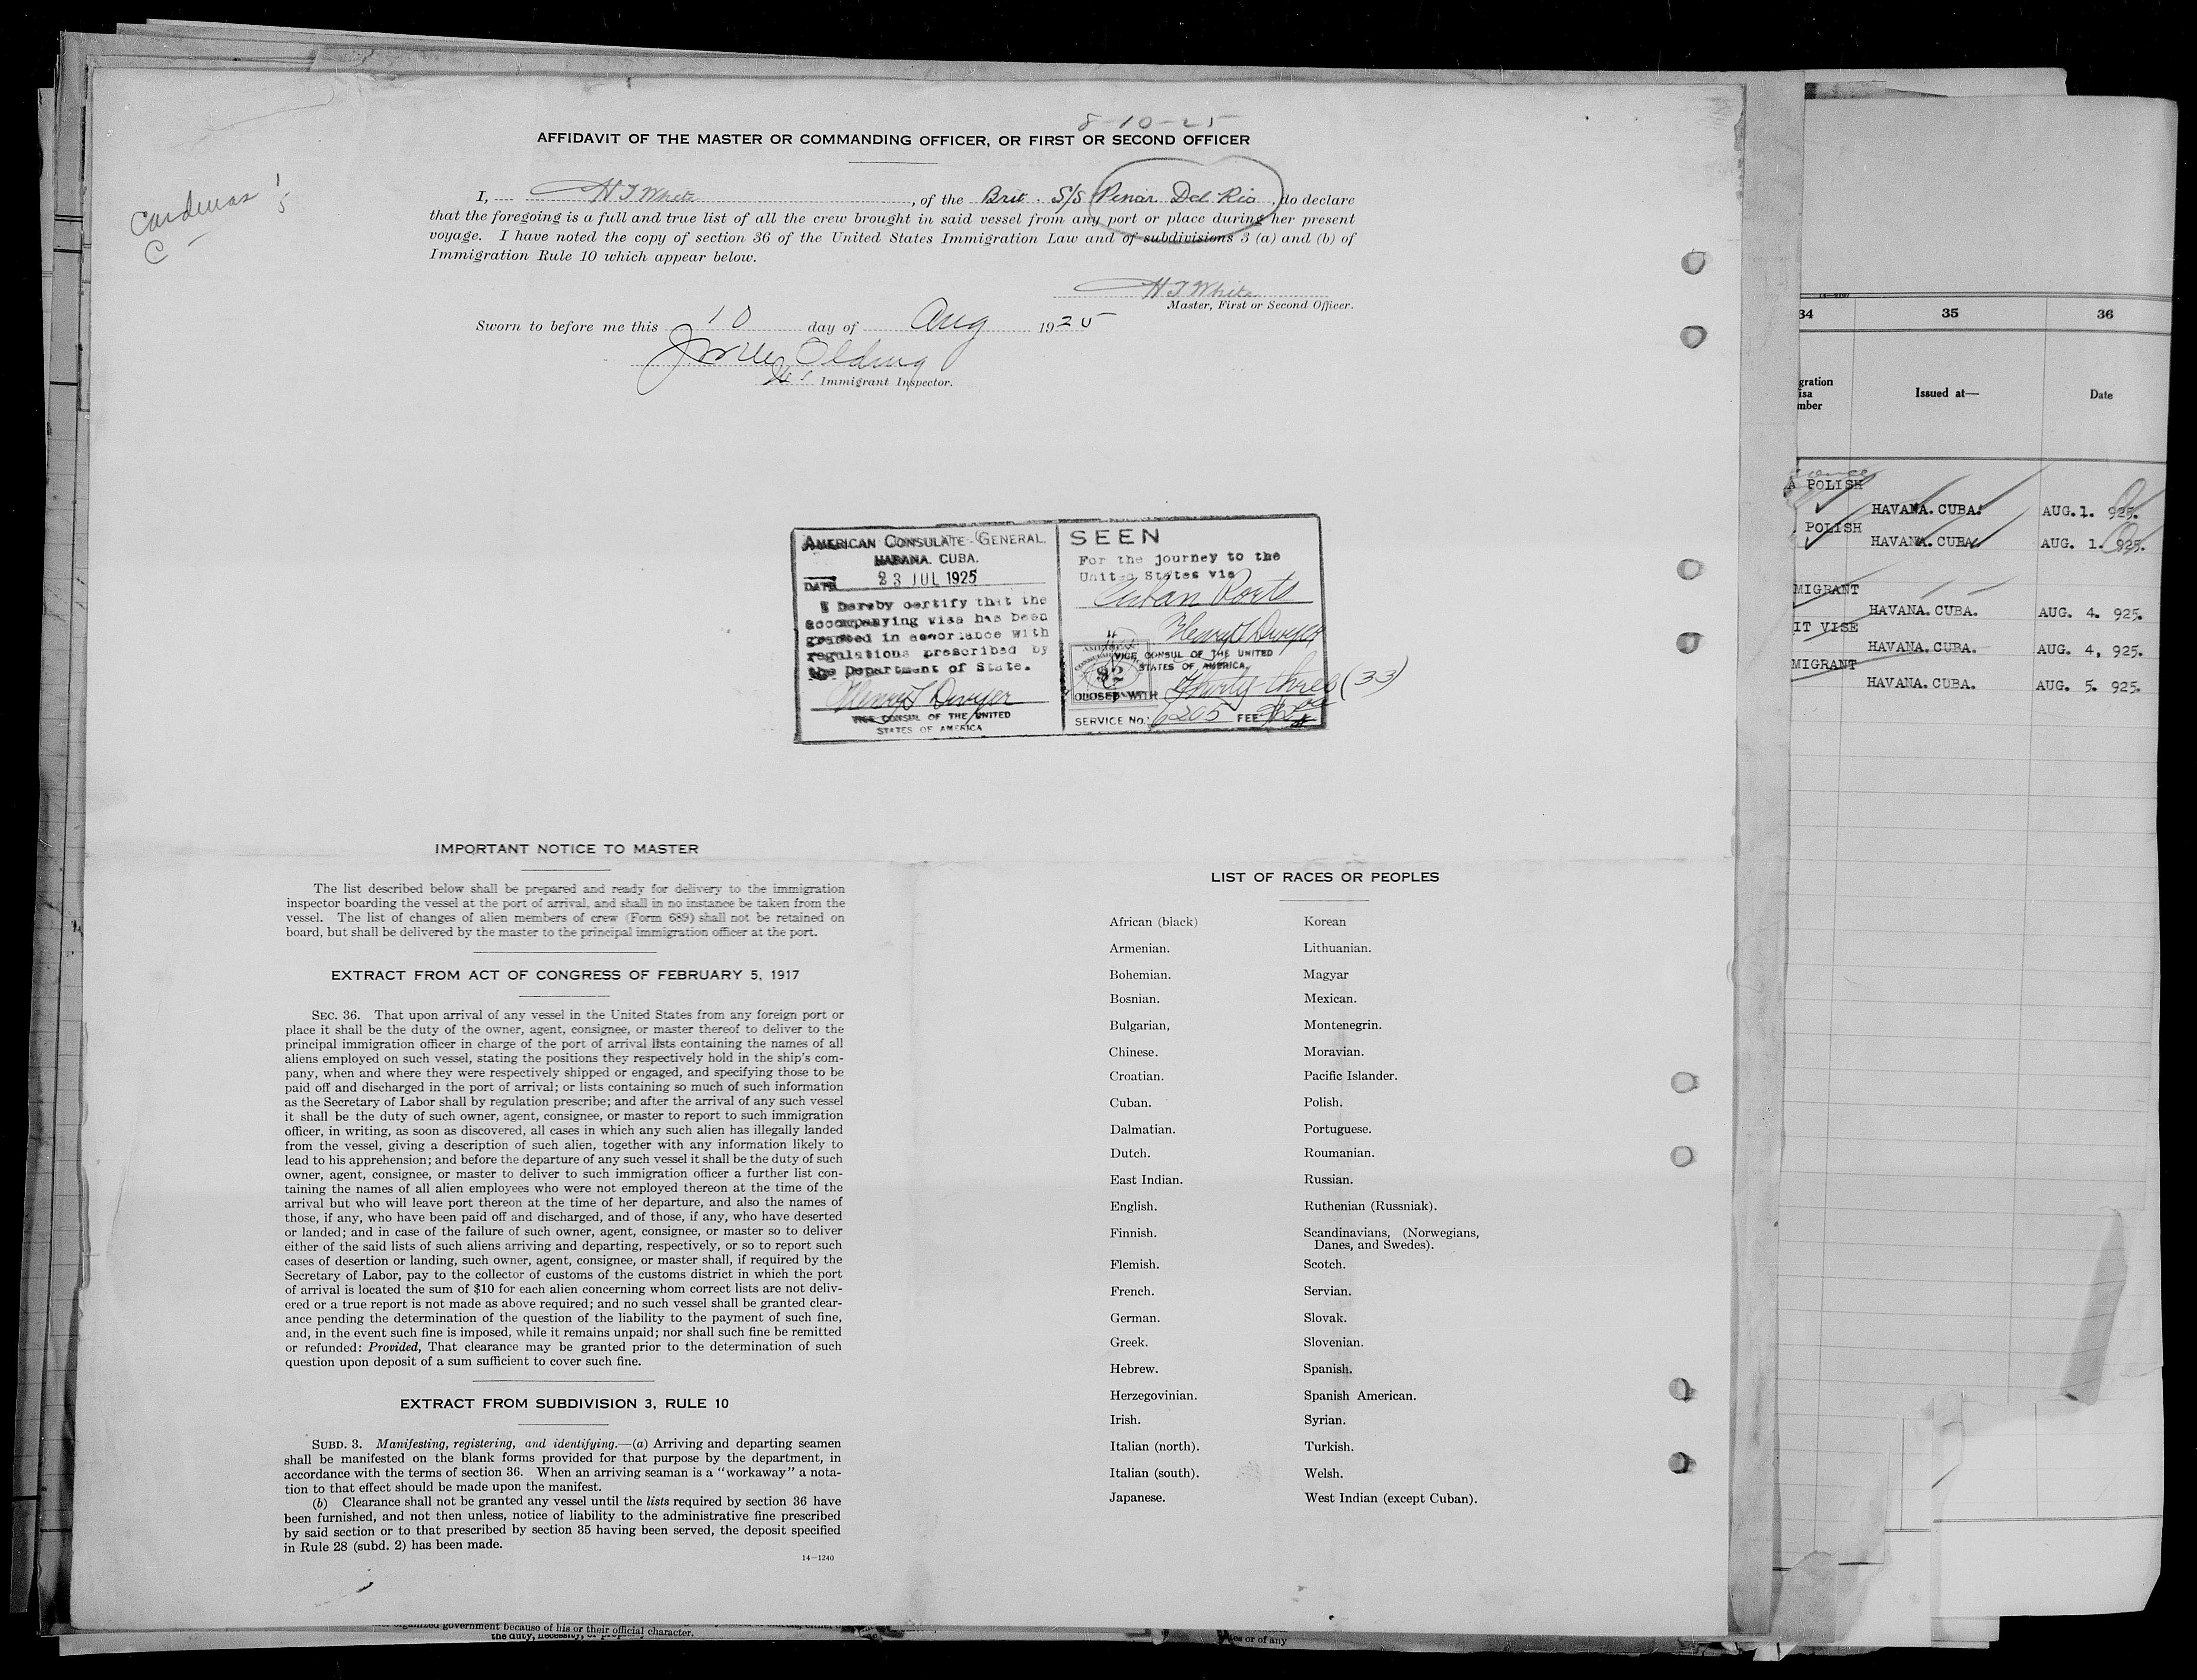 8-10-25
AFFIDAVIT OF THE MASTER OR COMMANDING OFFICER, OR FIRST OR SECOND OFFICER
Cardenas
C
I, H T White, of the Brit. S/S Pinar Del Rio, do declare
that the foregoing is a full and true list of all the crew brought in said vessel from any port or place during her present
voyage. I have noted the copy of section 36 of the United States Immigration Law and of subdivisions 3 (a) and (b) of
Immigration Rule 10 which appear below.
H T White
Master, First or Second Officer.
Sworn to before me this 10 day of Aug 1925
Olding
Immigrant Inspector.
AMERICAN CONSULATE-GENERAL.
HABANA. CUBA.
DATE 23 JUL 1925
I hereby certify that the
accompanying visa has been
granted in accordance with
regulations prescribed by
the Department of State.
Henry T Dwyer
VICE CONSUL OF THE UNITED
STATES OF AMERICA
SEEN
For the journey to the
United States via
Cuban Ports
Henry T Dwyer
VICE CONSUL OF THE UNITED
STATES OF AMERICA.
$2
CLOSED WITH Thirty-three (33)
SERVICE No. 6205 FEE
IMPORTANT NOTICE TO MASTER
The list described below shall be prepared and ready for delivery to the immigration
inspector boarding the vessel at the port of arrival, and shall in no instance be taken from the
vessel. The list of changes of alien members of crew (Form 689) shall not be retained on
board, but shall be delivered by the master to the principal immigration officer at the port.
EXTRACT FROM ACT OF CONGRESS OF FEBRUARY 5, 1917
SEC. 36. That upon arrival of any vessel in the United States from any foreign port or
place it shall be the duty of the owner, agent, consignee, or master thereof to deliver to the
principal immigration officer in charge of the port of arrival lists containing the names of all
aliens employed on such vessel, stating the positions they respectively hold in the ship's com-
pany, when and where they were respectively shipped or engaged, and specifying those to be
paid off and discharged in the port of arrival; or lists containing so much of such information
as the Secretary of Labor shall by regulation prescribe; and after the arrival of any such vessel
it shall be the duty of such owner, agent, consignee, or master to report to such immigration
officer, in writing, as soon as discovered, all cases in which any such alien has illegally landed
from the vessel, giving a description of such alien, together with any information likely to
lead to his apprehension; and before the departure of any such vessel it shall be the duty of such
owner, agent, consignee, or master to deliver to such immigration officer a further list con-
taining the names of all alien employees who were not employed thereon at the time of the
arrival but who will leave port thereon at the time of her departure, and also the names of
those, if any, who have been paid off and discharged, and of those, if any, who have deserted
or landed; and in case of the failure of such owner, agent, consignee, or master so to deliver
either of the said lists of such aliens arriving and departing, respectively, or so to report such
cases of desertion or landing, such owner, agent, consignee, or master shall, if required by the
Secretary of Labor, pay to the collector of customs of the customs district in which the port
of arrival is located the sum of $10 for each alien concerning whom correct lists are not deliv-
ered or a true report is not made as above required; and no such vessel shall be granted clear-
ance pending the determination of the question of the liability to the payment of such fine,
and, in the event such fine is imposed, while it remains unpaid; nor shall such fine be remitted
or refunded: Provided, That clearance may be granted prior to the determination of such
question upon deposit of a sum sufficient to cover such fine.
EXTRACT FROM SUBDIVISION 3, RULE 10
SUBD. 3. Manifesting, registering, and identifying.—(a) Arriving and departing seamen
shall be manifested on the blank forms provided for that purpose by the department, in
accordance with the terms of section 36. When an arriving seaman is a "workaway" a nota-
tion to that effect should be made upon the manifest.
(b) Clearance shall not be granted any vessel until the lists required by section 36 have
been furnished, and not then unless, notice of liability to the administrative fine prescribed
by said section or to that prescribed by section 35 having been served, the deposit specified
in Rule 28 (subd. 2) has been made.
14—1240
LIST OF RACES OR PEOPLES
African (black)
Armenian.
Bohemian.
Bosnian.
Bulgarian,
Chinese.
Croatian.
Cuban.
Dalmatian.
Dutch.
East Indian.
English.
Finnish.
Flemish.
French.
German.
Greek.
Hebrew.
Herzegovinian.
Irish.
Italian (north).
Italian (south).
Japanese.
Korean
Lithuanian.
Magyar
Mexican.
Montenegrin.
Moravian.
Pacific Islander.
Polish.
Portuguese.
Roumanian.
Russian.
Ruthenian (Russniak).
Scandinavians, (Norwegians,
Danes, and Swedes).
Scotch.
Servian.
Slovak.
Slovenian.
Spanish.
Spanish American.
Syrian.
Turkish.
Welsh.
West Indian (except Cuban).
34 35 36
gration
isa
mber
Issued at—
Date
A POLISH
HAVANA. CUBA. AUG. 1. 925.
POLISH
HAVANA. CUBA. AUG. 1. 925.
MIGRANT
HAVANA. CUBA. AUG. 4. 925.
IT VISE
HAVANA. CUBA. AUG. 4, 925.
MIGRANT
HAVANA. CUBA. AUG. 5. 925.
organized government because of his or their official character.
the duty, necessity, or propriety
tes or of any